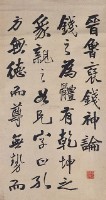 晉魯褒錢神論
錢之為體有乾坤之
象親之如兄字曰孔
方無德而尊無勢而